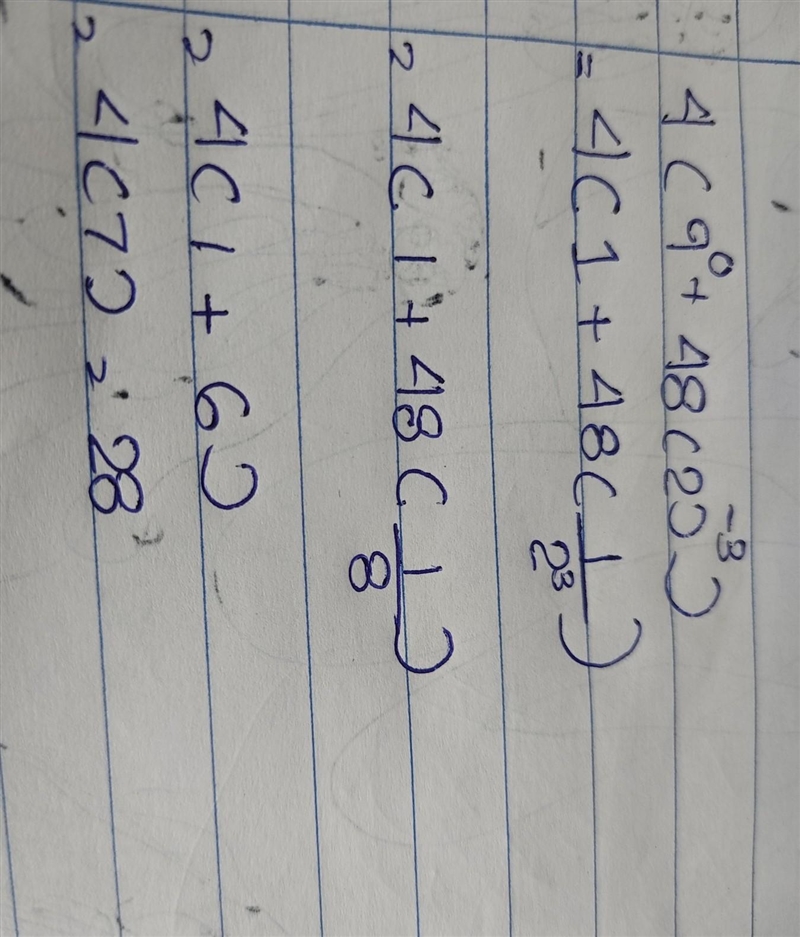 4(9⁰+48(2)⁻³)
=4(1+48(1/2³)
=4(1+48(1/8)
=4(1+6)
=4(7)=28